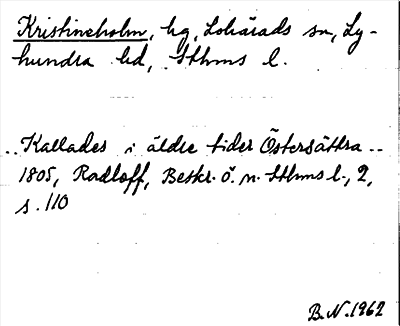 Kristineholm, hg, Lohärads sn, Ly-
hundra hd, Sthms l.
.. Kallades i äldre tider Östersättra ..
1805, Radloff, Beskr. ö. n. Sthms l., 2,
s. 110
B.N. 1962